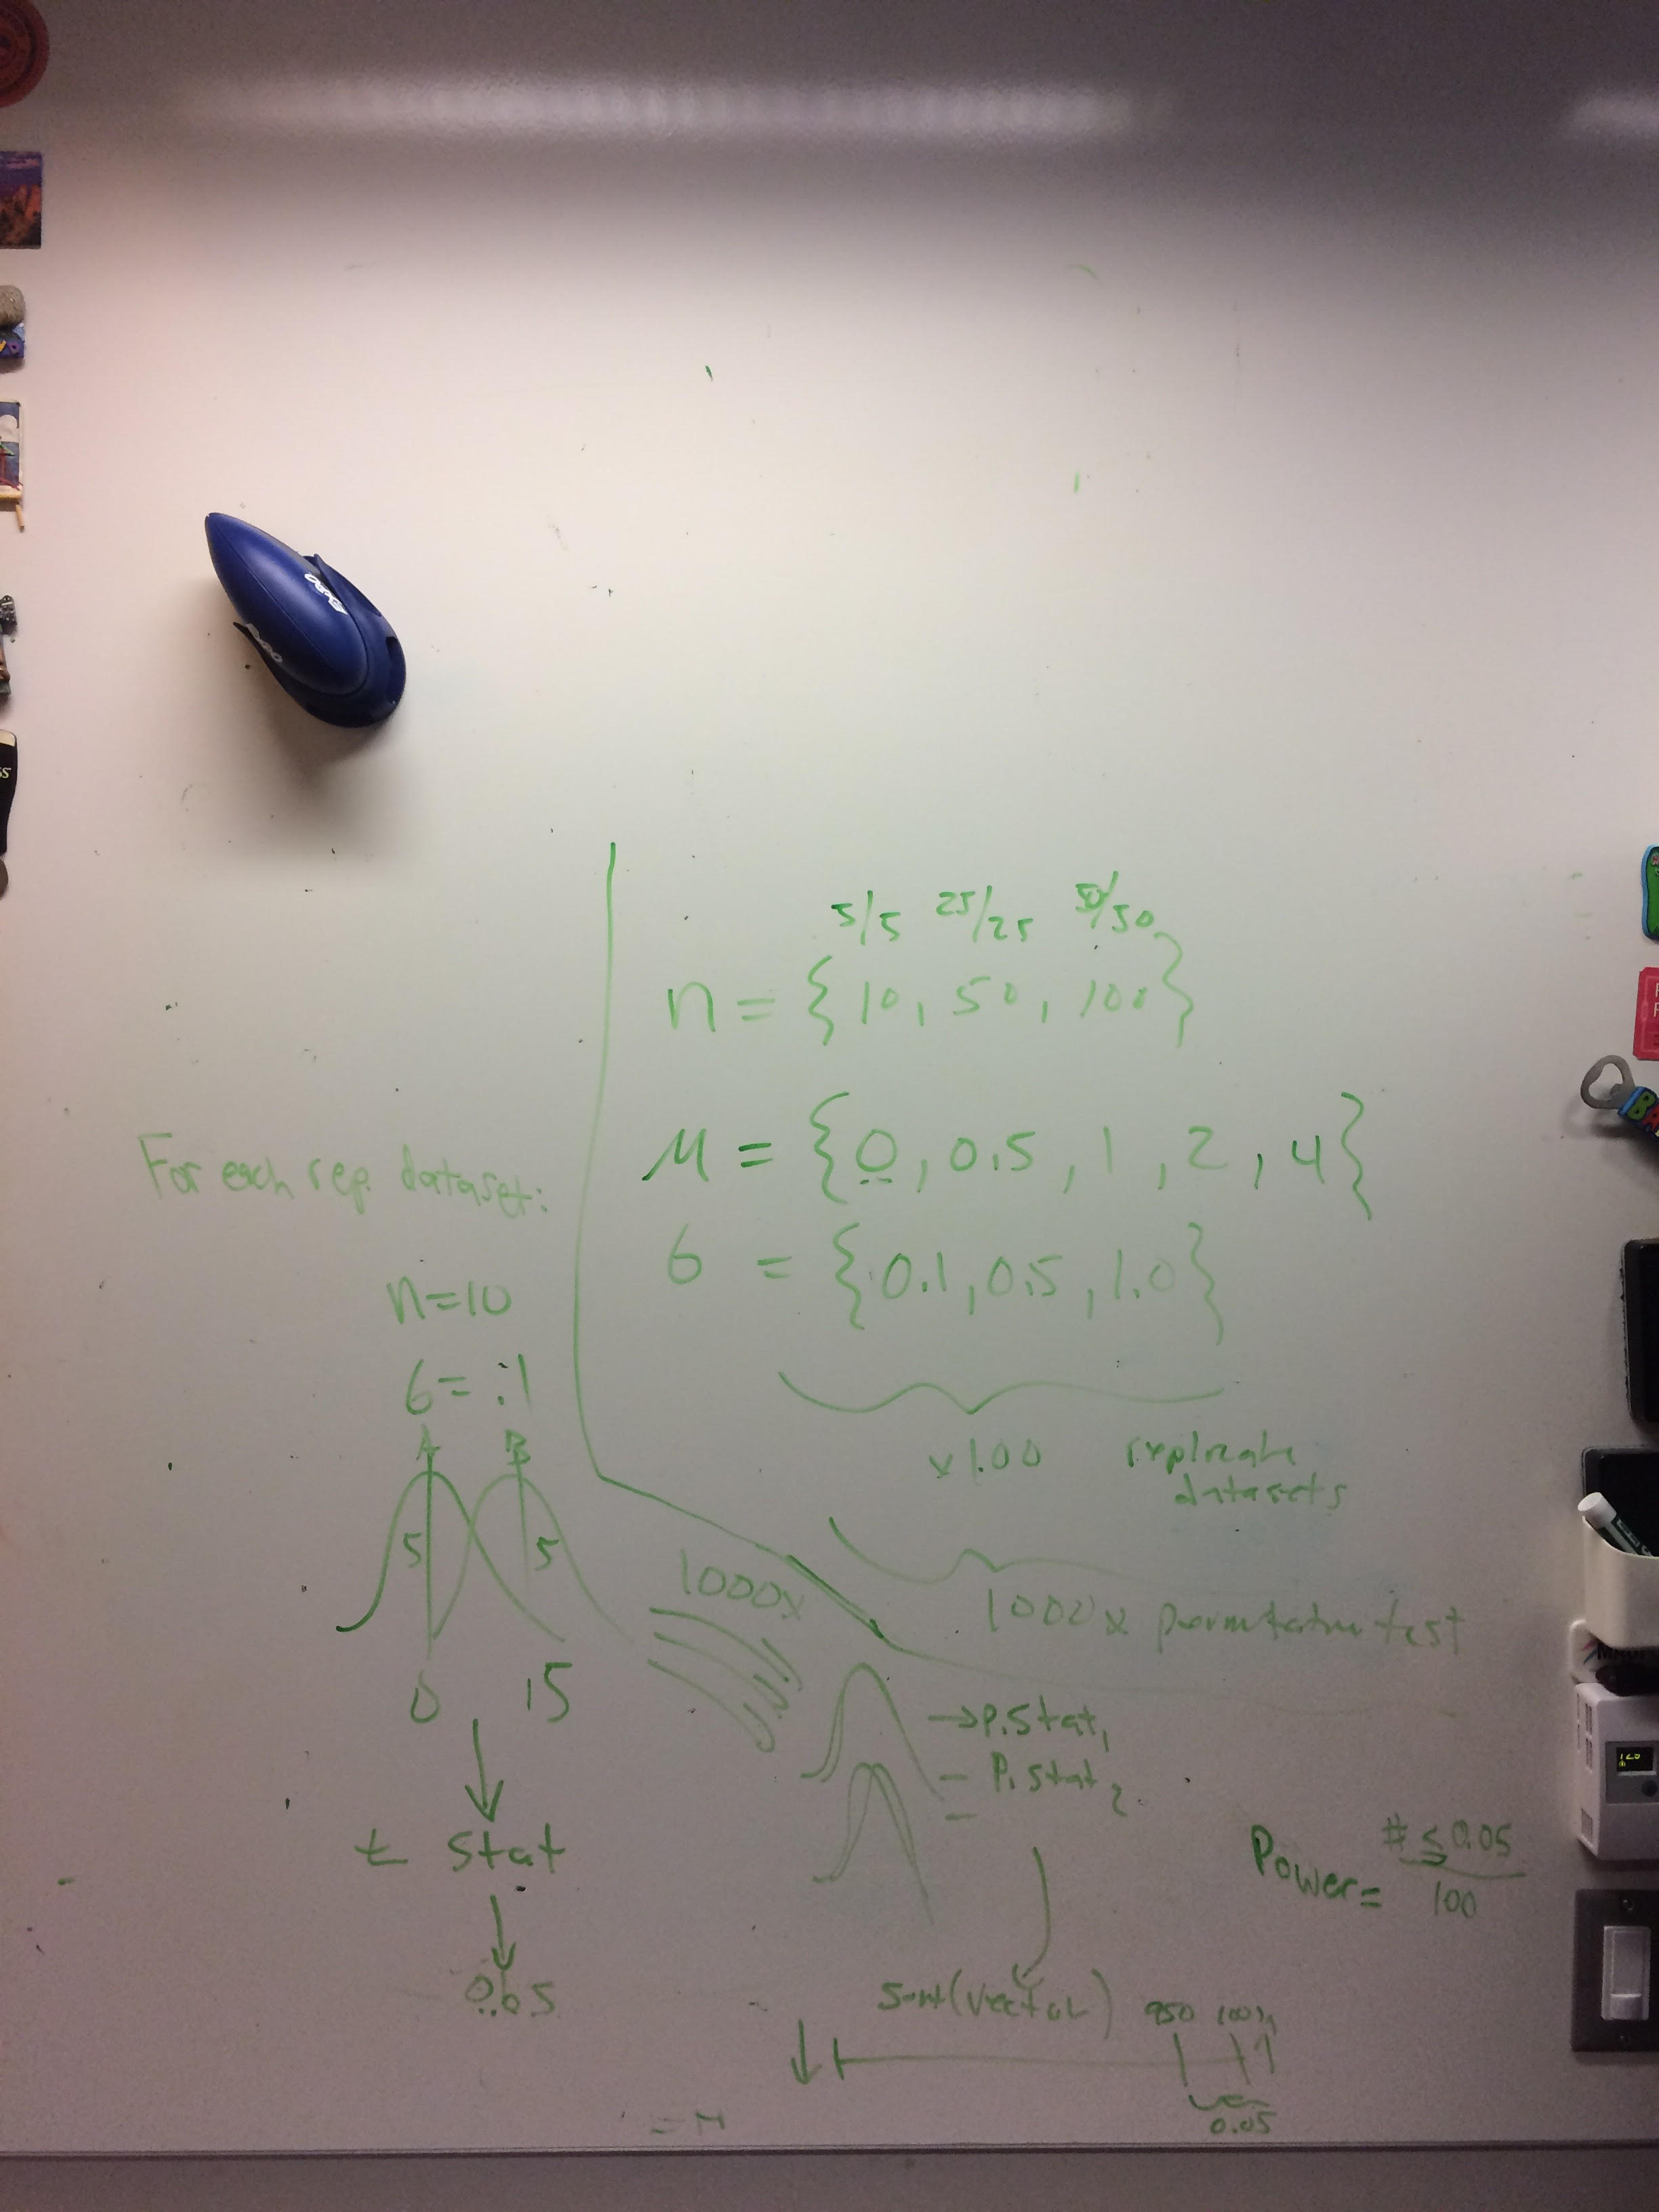 5/5 25/25 50/50
n = { 10, 50, 100 }
μ = { 0, 0.5, 1, 2, 4 }
σ = { 0.1, 0.5, 1.0 }
x 100 replicate
datasets
1000x permutation test
For each rep. dataset:
n=10
σ = .1
A B
5 5
0 .5
t stat
0.05
1000x
→ P.Stat1
– P.Stat2
Sort(vector)
950 1000
0.05
Power = # ≤ 0.05
100
EXPO
EXPO